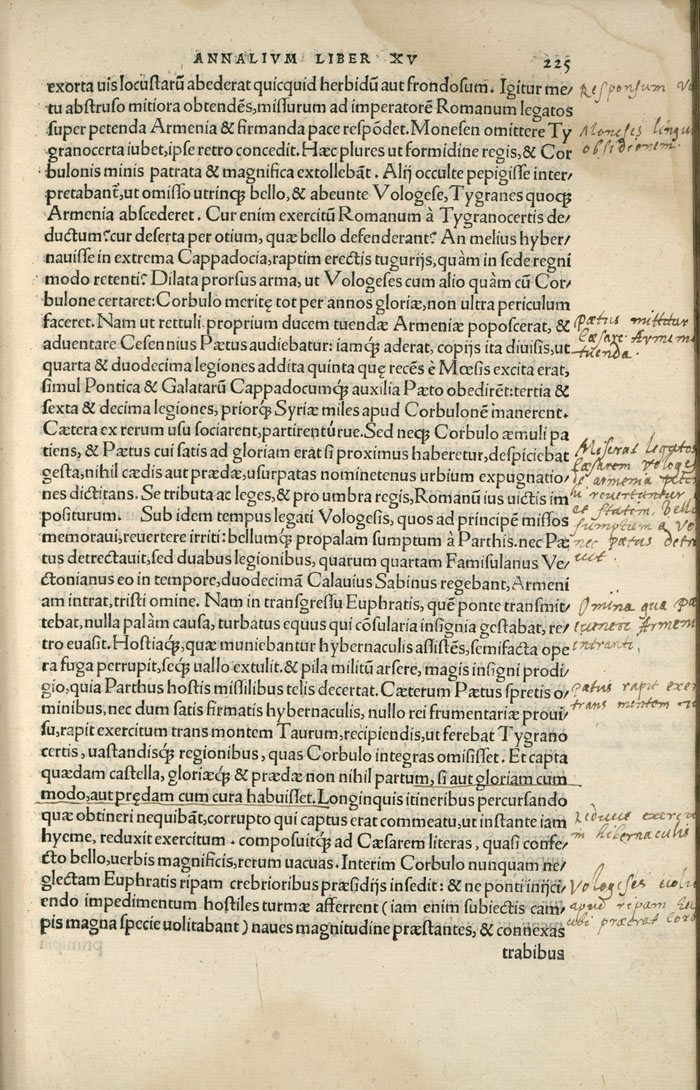 ANNALIVM LIBER XV 225
exorta uis locustarũ abederat quicquid herbidũ aut frondosum. Igitur me/
tu abstruso mitiora obtendẽs, missurum ad imperatorẽ Romanum legatos
super petenda Armenia & firmanda pace respõdet. Monesen omittere Ty
granocerta iubet, ipse retro concedit. Hæc plures ut formidine regis, & Cor
bulonis minis patrata & magnifica extollebãt. Alij occulte pepigisse inter/
pretabant̃, ut omisso utrinq; bello, & abeunte Vologese, Tygranes quoq;
Armenia abscederet. Cur enim exercitũ Romanum à Tygranocertis de/
ductum? cur deserta per otium, quæ bello defenderant? An melius hyber/
nauisse in extrema Cappadocia, raptim erectis tugurijs, quàm in sede regni
modo retenti? Dilata prorsus arma, ut Vologeses cum alio quàm cũ Cor/
bulone certaret: Corbulo meritę tot per annos gloriæ, non ultra periculum
faceret. Nam ut rettuli, proprium ducem tuendæ Armeniæ poposcerat, &
aduentare Cesennius Pætus audiebatur: iamq́; aderat, copijs ita diuisis, ut
quarta & duodecima legiones addita quinta quę recẽs è Mœsis excita erat,
simul Pontica & Galatarũ Cappadocumq́; auxilia Pæto obedirẽt: tertia &
sexta & decima legiones, priorq́; Syriæ miles apud Corbulonẽ manerent.
Cætera ex rerum usu sociarent, partirentúrue. Sed neq; Corbulo æmuli pa
tiens, & Pætus cui satis ad gloriam erat si proximus haberetur, despiciebat
gesta, nihil cædis aut prædæ, usurpatas nominetenus urbium expugnatio/
nes dictitans. Se tributa ac leges, & pro umbra regis, Romanũ ius uictis im
positurum. Sub idem tempus legati Vologesis, quos ad principẽ missos
memoraui, reuertere irriti: bellumq́; propalam sumptum à Parthis. nec Pæ
tus detrectauit, sed duabus legionibus, quarum quartam Famisulanus Ve/
ctonianus eo in tempore, duodecimã Calauius Sabinus regebant, Armeni
am intrat, tristi omine. Nam in transgressu Euphratis, quẽ ponte transmit/
tebat, nulla palàm causa, turbatus equus qui cõsularia insignia gestabat, re/
tro euasit. Hostiaq́;, quæ muniebantur hybernaculis assistẽs, semifacta ope
ra fuga perrupit, seq́; uallo extulit. & pila militũ arsere, magis insigni prodi/
gio, quia Parthus hostis missilibus telis decertat. Cæterum Pætus spretis o/
minibus, nec dum satis firmatis hybernaculis, nullo rei frumentariæ proui/
su, rapit exercitum trans montem Taurum, recipiendis, ut ferebat Tygrano
certis, uastandisq́; regionibus, quas Corbulo integras omisisset. Et capta
quædam castella, gloriæq́; & prædæ non nihil partum, si aut gloriam cum
modo, aut prędam cum cura habuisset. Longinquis itineribus percursando
quæ obtineri nequibãt, corrupto qui captus erat commeatu, ut instante iam
hyeme, reduxit exercitum. composuitq́; ad Cæsarem literas, quasi confe/
cto bello, uerbis magnificis, rerum uacuas. Interim Corbulo nunquam ne/
glectam Euphratis ripam crebrioribus præsidijs insedit: & ne ponti inijci/
endo impedimentum hostiles turmæ afferrent (iam enim subiectis cam/
pis magna specie uolitabant) naues magnitudine præstantes, & connexas
trabibus
Responsum
Moneses
obsidionem.
Pætus mittitur
Cæsare
tuenda.
Cæsarem
reuertuntur
sumptum a
nec pætus
Omina
intranti.
pætus rapit
trans montem
hibernaculis
Vologeses
apud ripam